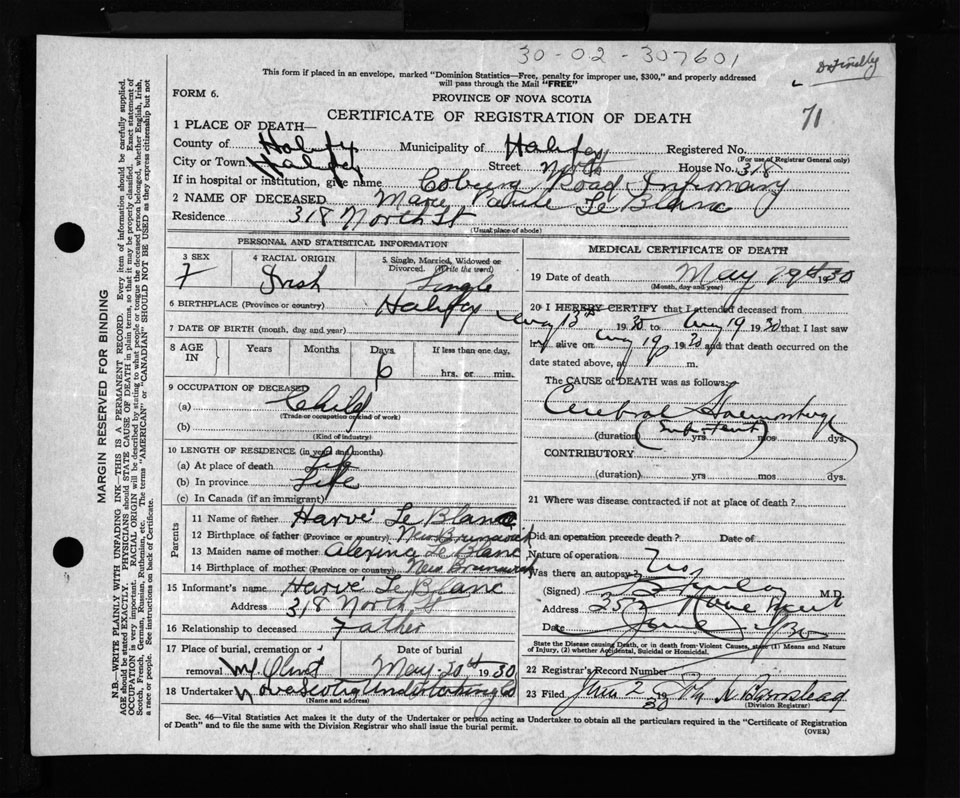 30-02-307601
Dr Findlay
71
This form if placed in an envelope, marked "Dominion Statistics—Free, penalty for improper use, $300," and properly addressed
will pass through the Mail "FREE"
FORM 6.
PROVINCE OF NOVA SCOTIA
CERTIFICATE OF REGISTRATION OF DEATH
1 PLACE OF DEATH—
County of Halifax Municipality of Halifax Registered No.
(For use of Registrar General only)
City or Town Halifax Street North House No. 318
If in hospital or institution, give name Coburg Road Infirmary
2 NAME OF DECEASED Marie Pauline Le Blanc
Residence 318 North St
(Usual place of abode)
PERSONAL AND STATISTICAL INFORMATION
3 SEX 4 RACIAL ORIGIN 5. Single, Married, Widowed or
Divorced. (Write the word)
F Irish Single
6 BIRTHPLACE (Province or country) Halifax
7 DATE OF BIRTH (month, day and year)
8 AGE IN Years Months Days If less than one day,
6 hrs. or min.
9 OCCUPATION OF DECEASED
(a) Child
(Trade or occupation or kind of work)
(b)
(Kind of industry)
10 LENGTH OF RESIDENCE (in years and months)
(a) At place of death Life
(b) In province Life
(c) In Canada (if an immigrant)
Parents
11 Name of father Harvé Le Blanc
12 Birthplace of father (Province or country) New Brunswick
13 Maiden name of mother Alexina Le Blanc
14 Birthplace of mother (Province or country) New Brunswick
15 Informant's name Harvé Le Blanc
Address 318 North St
16 Relationship to deceased Father
17 Place of burial, cremation or removal Mt Olivet Date of burial May-20th 1930
18 Undertaker Nova Scotia Undertaking Co
(Name and address)
MEDICAL CERTIFICATE OF DEATH
19 Date of death May 19th 1930
(Month, day and year)
20 I HEREBY CERTIFY that I attended deceased from
13th 1930 to 19 1930 that I last saw
h alive on 19 1930 and that death occurred on the
date stated above, at m.
The CAUSE of DEATH was as follows:
Cerebral Haemorrhage
(duration) yrs mos dys.
CONTRIBUTORY
(duration) yrs mos dys.
21 Where was disease contracted if not at place of death?
Did an operation precede death? Date of
Nature of operation
Was there an autopsy? No
(Signed) M.D.
Address
Date June
State the Disease causing Death, or in death from Violent Causes, state (1) Means and Nature
of Injury, (2) whether Accidental, Suicidal or Homicidal.
22 Registrar's Record Number
23 Filed June 2 1930
(Division Registrar)
Sec. 46—Vital Statistics Act makes it the duty of the Undertaker or person acting as Undertaker to obtain all the particulars required in the "Certificate of Registration
of Death" and to file the same with the Division Registrar who shall issue the burial permit.
(OVER)
MARGIN RESERVED FOR BINDING
N.B.—WRITE PLAINLY WITH UNFADING INK—THIS IS A PERMANENT RECORD. Every item of information should be carefully supplied.
AGE should be stated EXACTLY. PHYSICIANS should STATE CAUSE OF DEATH in plain terms, so that it may be properly classified. Exact statement of
OCCUPATION is very important. RACIAL ORIGIN will be described by stating to what people or tongue the deceased person belonged, whether English, Irish,
Scotch, French, German, Russian, Ruthenian, etc. The terms "AMERICAN" or "CANADIAN" SHOULD NOT BE USED as they express citizenship but not
a race or people. See instructions on back of Certificate.